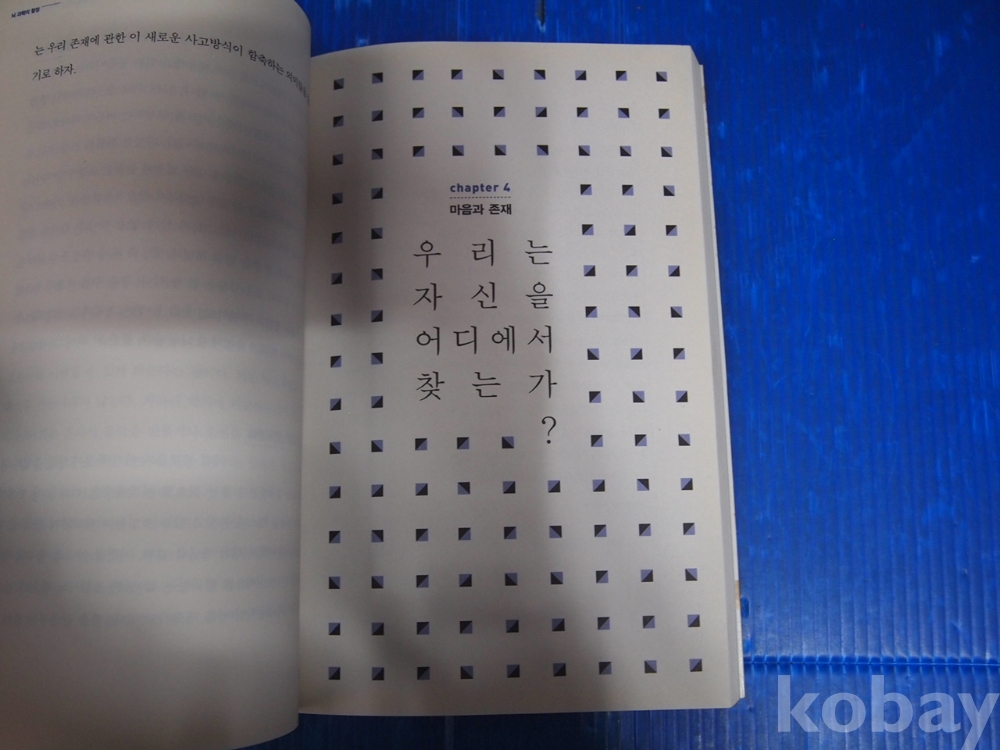 뇌 과학의 함정
는 우리 존재에 관한 이 새로운 사고방식이 함축하는
기로 하자.
chapter 4
마음과 존재
우리는
자신을
어디에서
찾는가
?
kobay